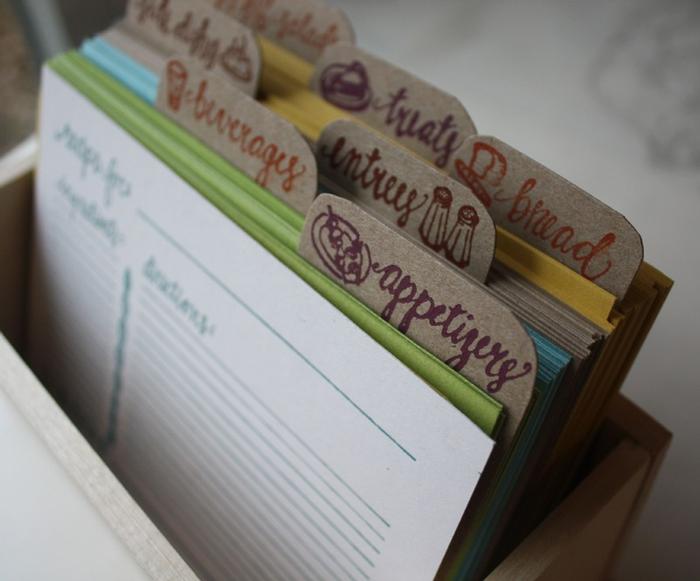 side dishes
beverages
treats
entrees
bread
appetizers
recipe for:
ingredients:
directions: